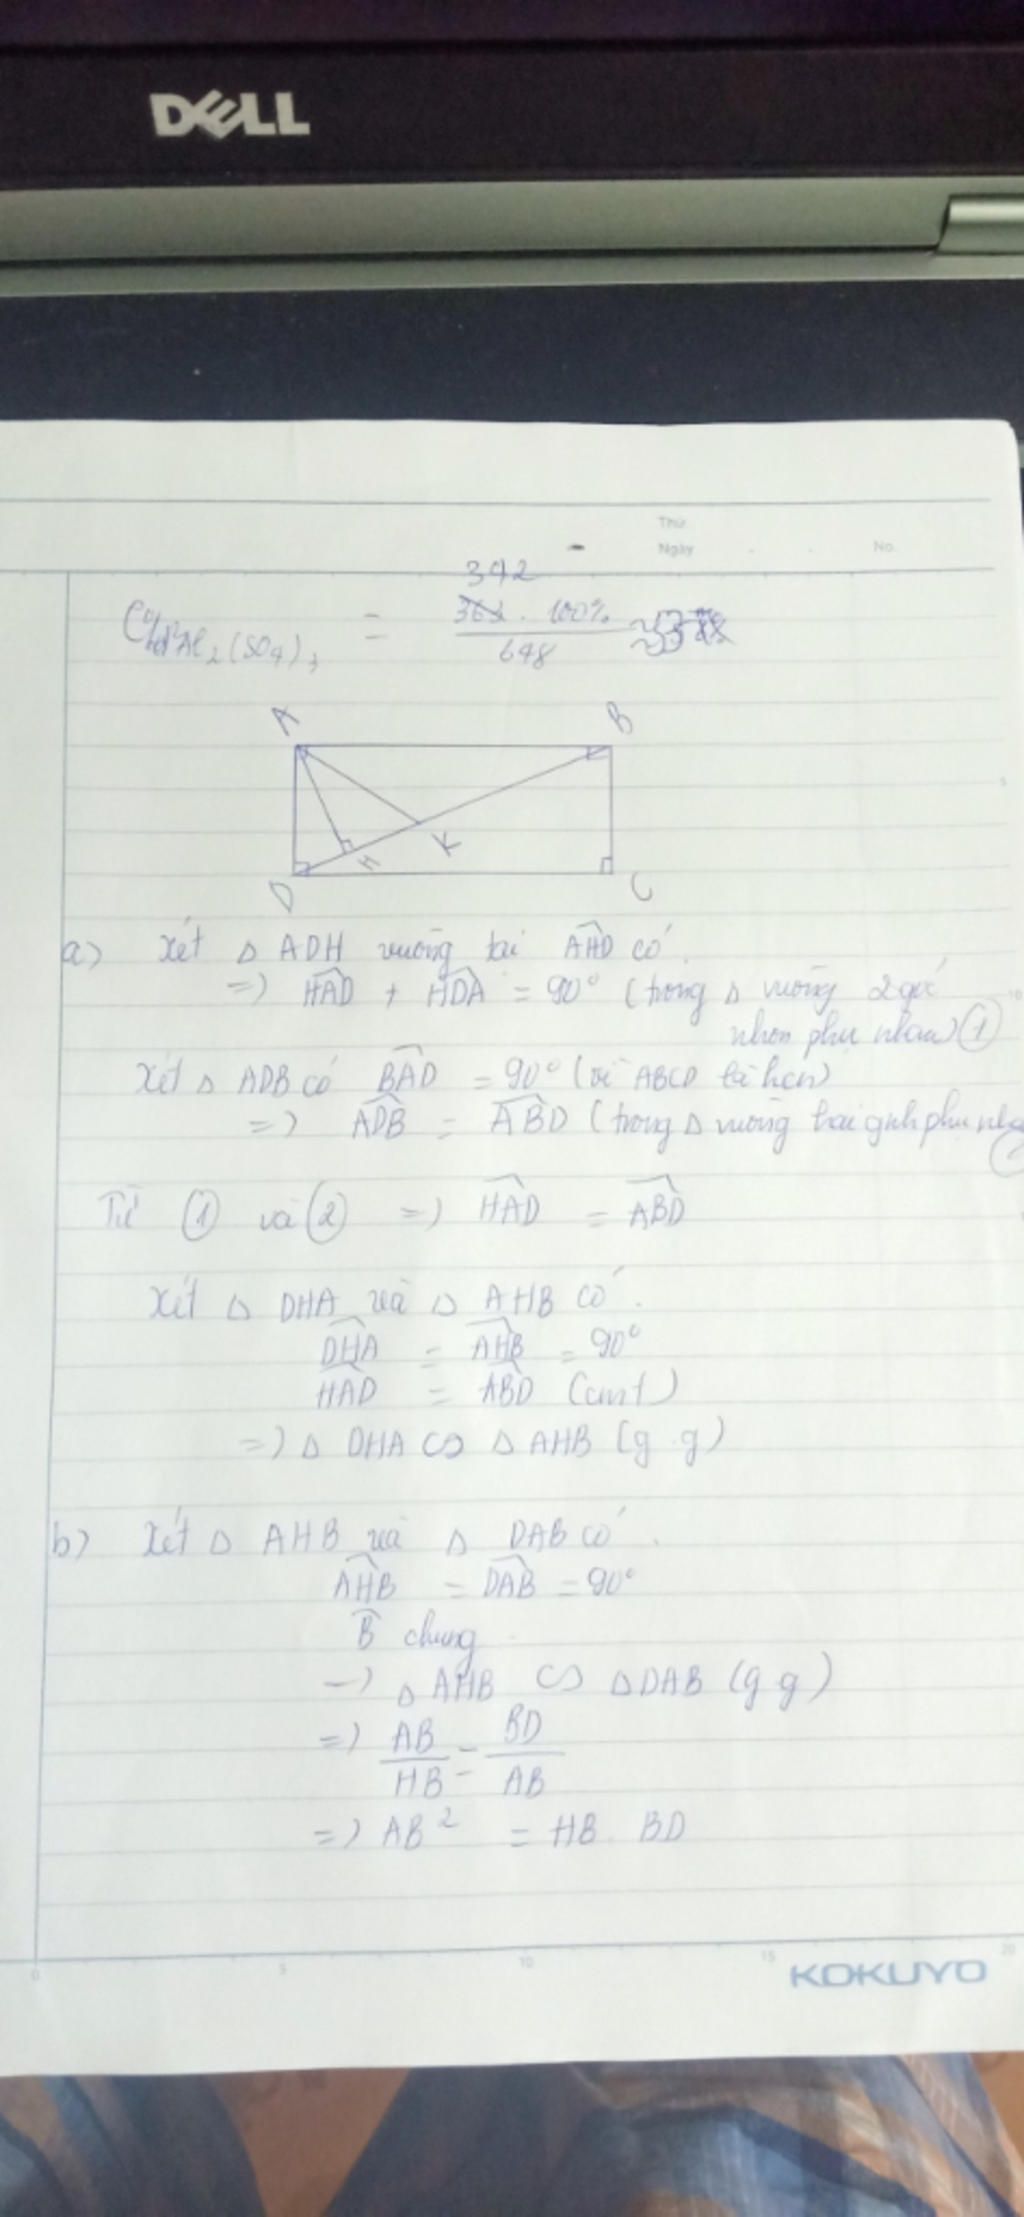 DELL
Thứ
Ngày No.
342
Al₂(SO₄)₃ = 100%
648
A B
H K
D C
a) Xét △ ADH vuông tại AHD có
=) HAD + HDA = 90° (trong △ vuông 2 góc
nhọn phụ nhau) ①
Xét △ ADB có BAD = 90° (vì ABCD là hcn)
=) ADB = ABD (trong △ vuông hai gnh phụ
Từ ① và ② =) HAD = ABD
Xét △ DHA và △ AHB có
DHA = AHB = 90°
HAD = ABD (cmt)
=) △ DHA ∽ △ AHB (g.g)
b) Xét △ AHB và △ DAB có
AHB = DAB = 90°
B chung
=) △ AHB ∽ △ DAB (g g)
=) AB/HB = BD/AB
=) AB² = HB. BD
0 5 10 15 20
KOKUYO